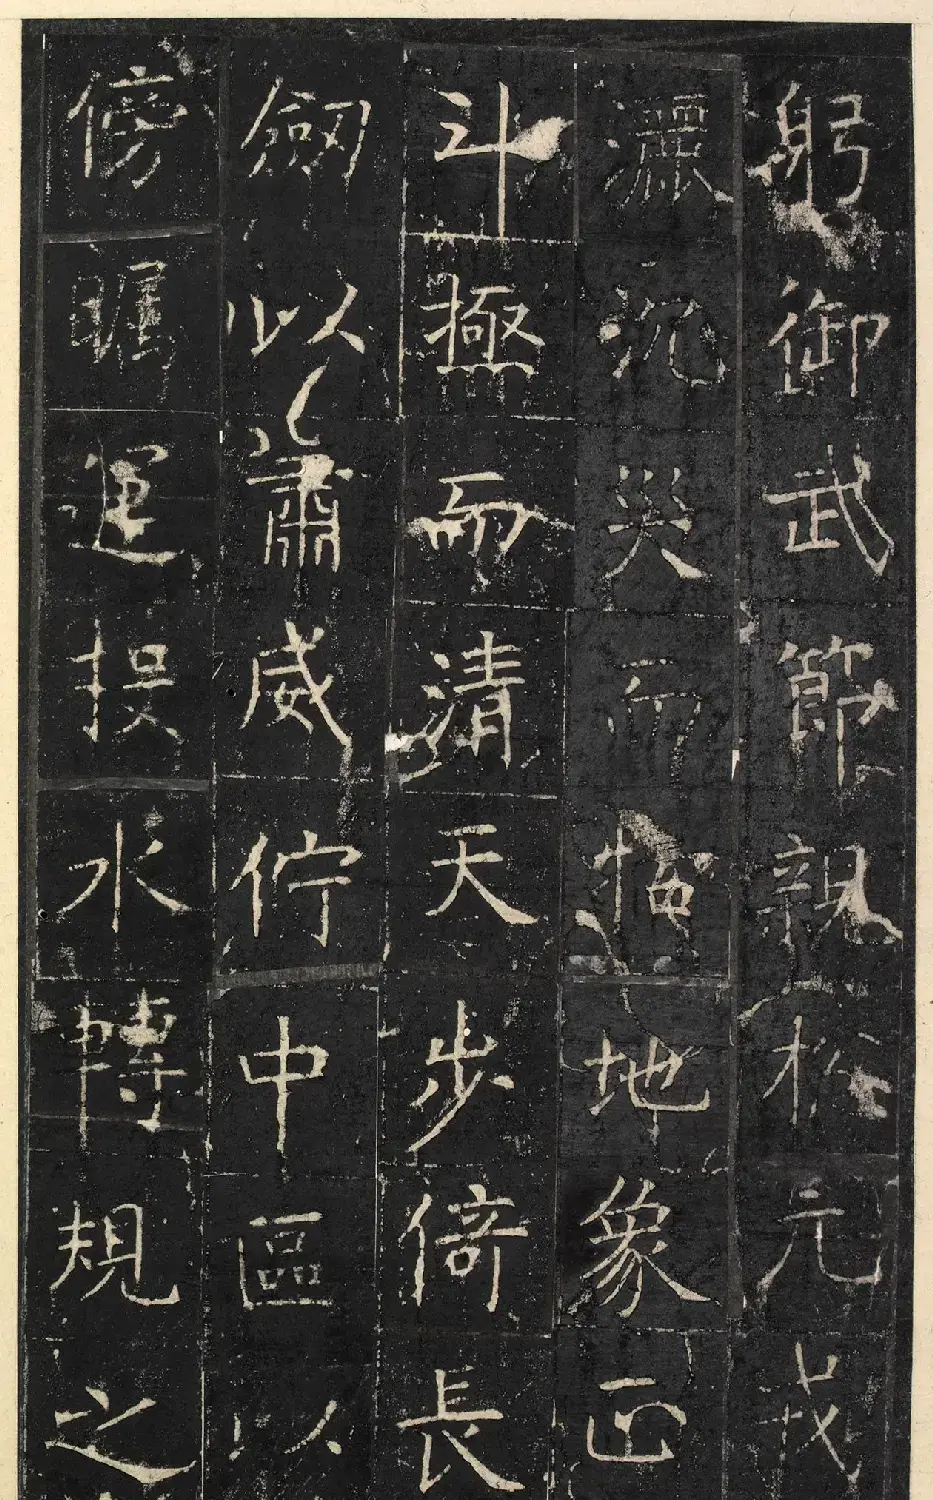 躬御武節親元戎
灑沉災而地象正
斗極而清天步倚長
劍以肅威佇中區以
傍矚運投水轉規之